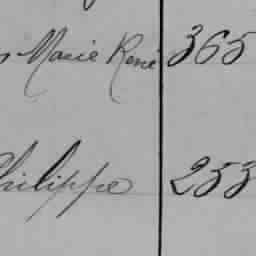 Marie René 365
Philippe 253